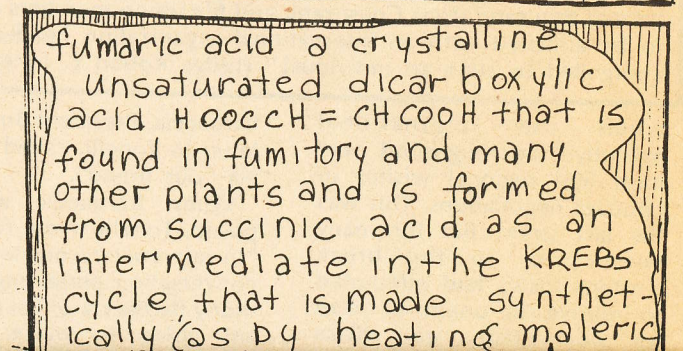 fumaric acid a crystalline
unsaturated dicarboxylic
acid HOOCCH = CHCOOH that is
found in fumitory and many
other plants and is formed
from succinic acid as an
intermediate in the KREBS
cycle, that is made synthet-
ically (as by heating maleric